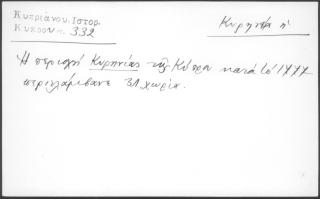 Κυπριάνου. Ιστορ.
Κύπρου σ. 332
Κυρηνία ἡ
Ἡ περιοχὴ Κυρηνίας τῆς Κύπρου κατὰ τὸ 1777
περιλάμβανε 31 χωρία.